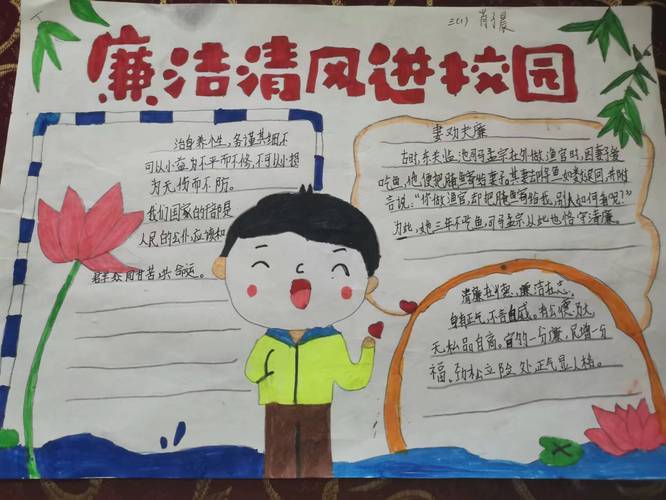 三(1) 肖
廉洁清风进校园
治身养个生，务谨其细不
可以小益为不平而不修，不可以小损
为无伤而不防。
我们国家的干部是
人民的公仆应该和
群众同甘苦，共命运。
妻劝夫廉
古时，东夫临池司马孟宗在外做渔官时，因妻子爱
吃鱼，他便把腌鱼寄给妻子。其妻却将鱼如数退回，并附
言说：“你做渔官，却把腌鱼寄给我，别人如何看呢？”
为此，她三年不吃鱼，司马孟宗从此也恪守清廉。
清廉在德，廉洁在志。
身有正气，不言自威。有公德乃大，
无私品自高。官的一分廉，民增一分
福。劲松立险处正气显人格。